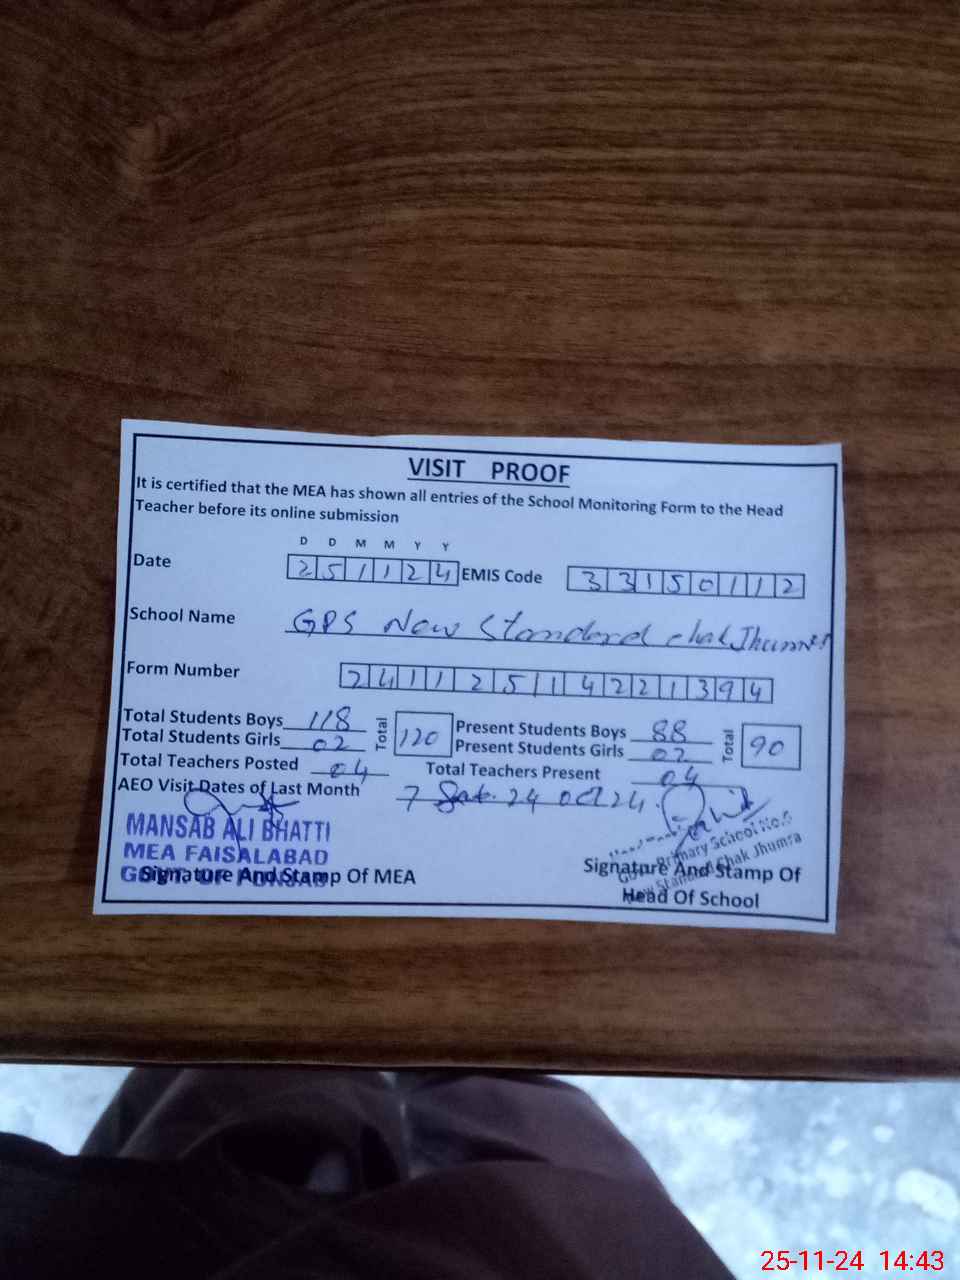 VISIT PROOF
It is certified that the MEA has shown all entries of the School Monitoring Form to the Head
Teacher before its online submission
D D M M Y Y
Date 251124 EMIS Code 33150112
School Name GPS New Standard chak Jhumra
Form Number 241125114221394
Total Students Boys 118 Total 120 Present Students Boys 88 Total 90
Total Students Girls 02 Present Students Girls 02
Total Teachers Posted 04 Total Teachers Present 04
AEO Visit Dates of Last Month 24 Oct 24
MANSAB ALI BHATTI
MEA FAISALABAD
GOVT. OF PUNJAB
Signature And Stamp Of MEA
Primary School No.5
New Standard Chak Jhumra
Signature And Stamp Of
Head Of School
25-11-24 14:43